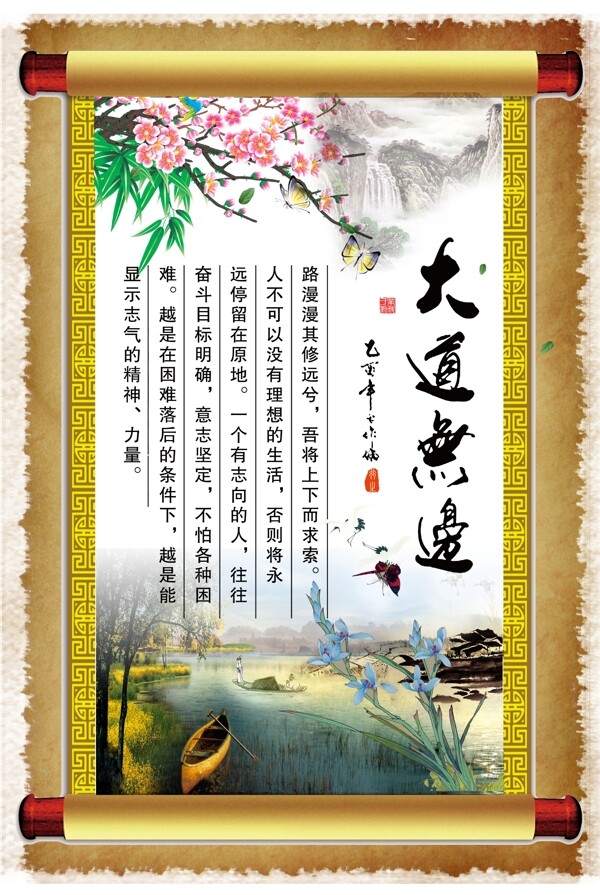 大道無邊
路漫漫其修远兮，吾将上下而求索。
人不可以没有理想的生活，否则将永
远停留在原地。一个有志向的人，往往
奋斗目标明确，意志坚定，不怕各种困
难。越是在困难落后的条件下，越是能
显示志气的精神、力量。